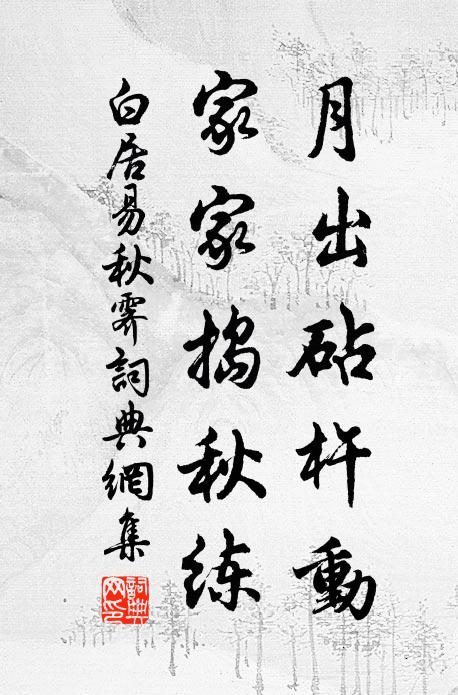 月出砧杵動
家家搗秋練
白居易秋霽詞典網集